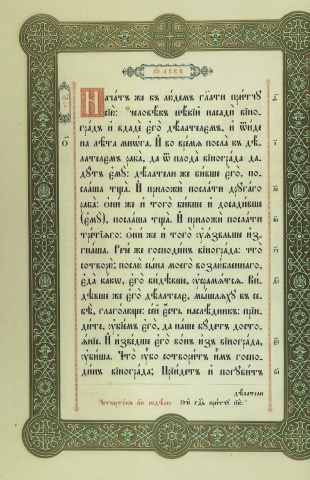 Ѿ ЛꙊКИ
Начатъ же къ людемъ гл҃ати при́тчꙋ
сїю̀: Человѣ́къ нѣ́кїй насадѝ вїно-
гра́дъ и҆ вдадѐ є҆го̀ дѣ́лателємъ, и҆ ѿи́де
на лѣ̑та мнѡ́га. И҆ во вре́мѧ посла̀ къ дѣ́-
лателємъ раба̀, да ѿ плода̀ вїногра́да да-
дꙋ́тъ є҆мꙋ̀: дѣ́лателє же би́вше є҆го̀, по-
сла́ша тща̀. И҆ приложѝ посла́ти дрꙋга́го
раба̀: ѻ҆ни́ же и҆ того̀ би́вше и҆ досади́вше
(є҆мꙋ̀), посла́ша тща̀. И҆ приложѝ посла́ти
тре́тїѧго: ѻ҆ни́ же и҆ того̀ ᲂу҆ѧ́звльше и҆з-
гна́ша. Рече́ же господи́нъ вїногра́да: что̀
сотворю̀; послю̀ сы́на моего̀ возлю́бленнаго,
є҆да̀ ка́кѡ, є҆го̀ ви́дѣвше, ᲂу҆срамѧ́тсѧ. Ви́-
дѣвше же є҆го̀ дѣ́лателє, мы́шлѧхꙋ въ се-
бѣ̀, глаго́люще: се́й є҆́сть наслѣ́дникъ: прїи-
ди́те, ᲂу҆бїе́мъ є҆го̀, да на́ше бꙋ́детъ досто-
ѧ́нїе. И҆ изве́дше є҆го̀ во́нъ и҆з̾ вїногра́да,
ᲂу҆би́ша. Что̀ ᲂу҆̀бо сотвори́тъ и҆̀мъ госпо-
ди́нъ вїногра́да; Прїи́детъ и҆ погꙋби́тъ
дѣ́латєли
Речѐ гдⷭ҇ь при́тчꙋ сїю̀: